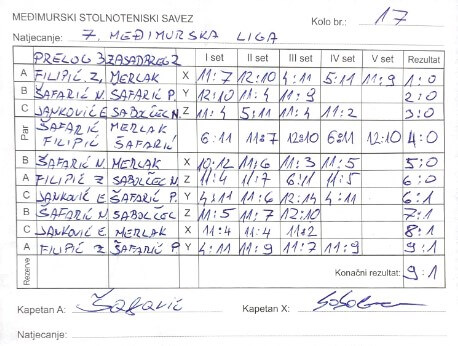 MEĐIMURSKI STOLNOTENISKI SAVEZ Kolo br.: 17
Natjecanje: 7. MEĐIMURSKA LIGA
PRELOG 3 ZASADBREG 2 I set II set III set IV set V set Rezultat
A FILIPIĆ Z. MERLAK X 11:7 12:10 4:11 5:11 11:9 1:0
B ŠAFARIĆ N. ŠAFARIĆ P. Y 12:10 11:4 11:9 2:0
C JANKOVIĆ E. SABOLČEC N. Z 11:4 5:11 11:4 11:2 3:0
Par ŠAFARIĆ FILIPIĆ MERLAK ŠAFARIĆ 6:11 11:7 12:10 6:11 12:10 4:0
B ŠAFARIĆ N. MERLAK X 10:12 11:6 11:3 11:5 5:0
A FILIPIĆ Z SABOLČEC N. Z 11:4 11:7 6:11 11:5 6:0
C JANKOVIĆ E. ŠAFARIĆ P. Y 4:11 11:6 12:14 4:11 6:1
B ŠAFARIĆ N. SABOLČEC Z 11:5 11:7 12:10 7:1
C JANKOVIĆ E. MERLAK X 11:4 11:4 11:2 8:1
A FILIPIĆ Z ŠAFARIĆ P. Y 4:11 11:9 11:7 11:9 9:1
Rezerve Konačni rezultat: 9:1
Kapetan A: Šafarić Kapetan X:
Natjecanje: